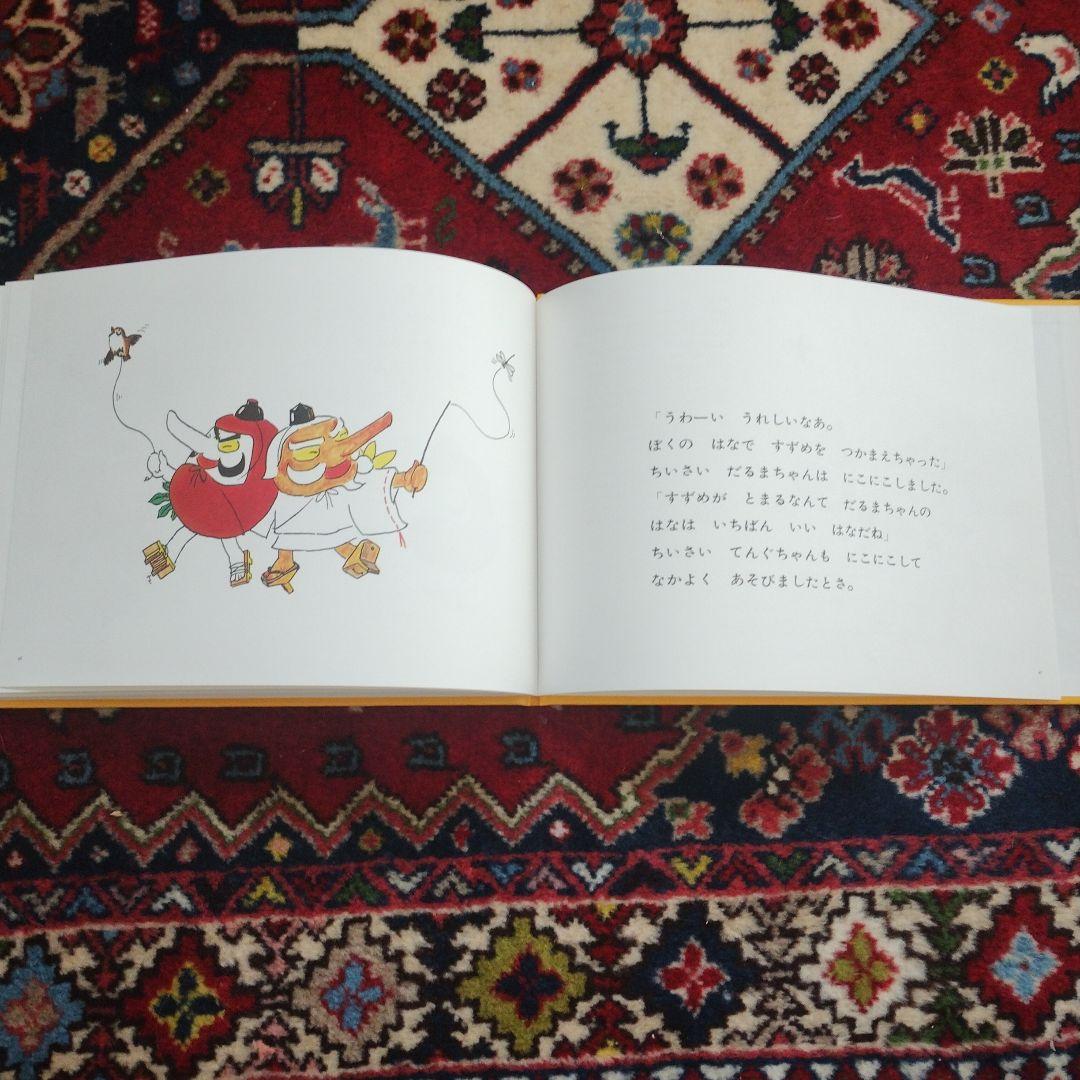 「うわーい　うれしいなあ。
ぼくの　はなで　すずめを　つかまえちゃった」
ちいさい　だるまちゃんは　にこにこしました。
「すずめが　とまるなんて　だるまちゃんの
はなは　いちばん　いい　はなだね」
ちいさい　てんぐちゃんも　にこにこして
なかよく　あそびましたとさ。